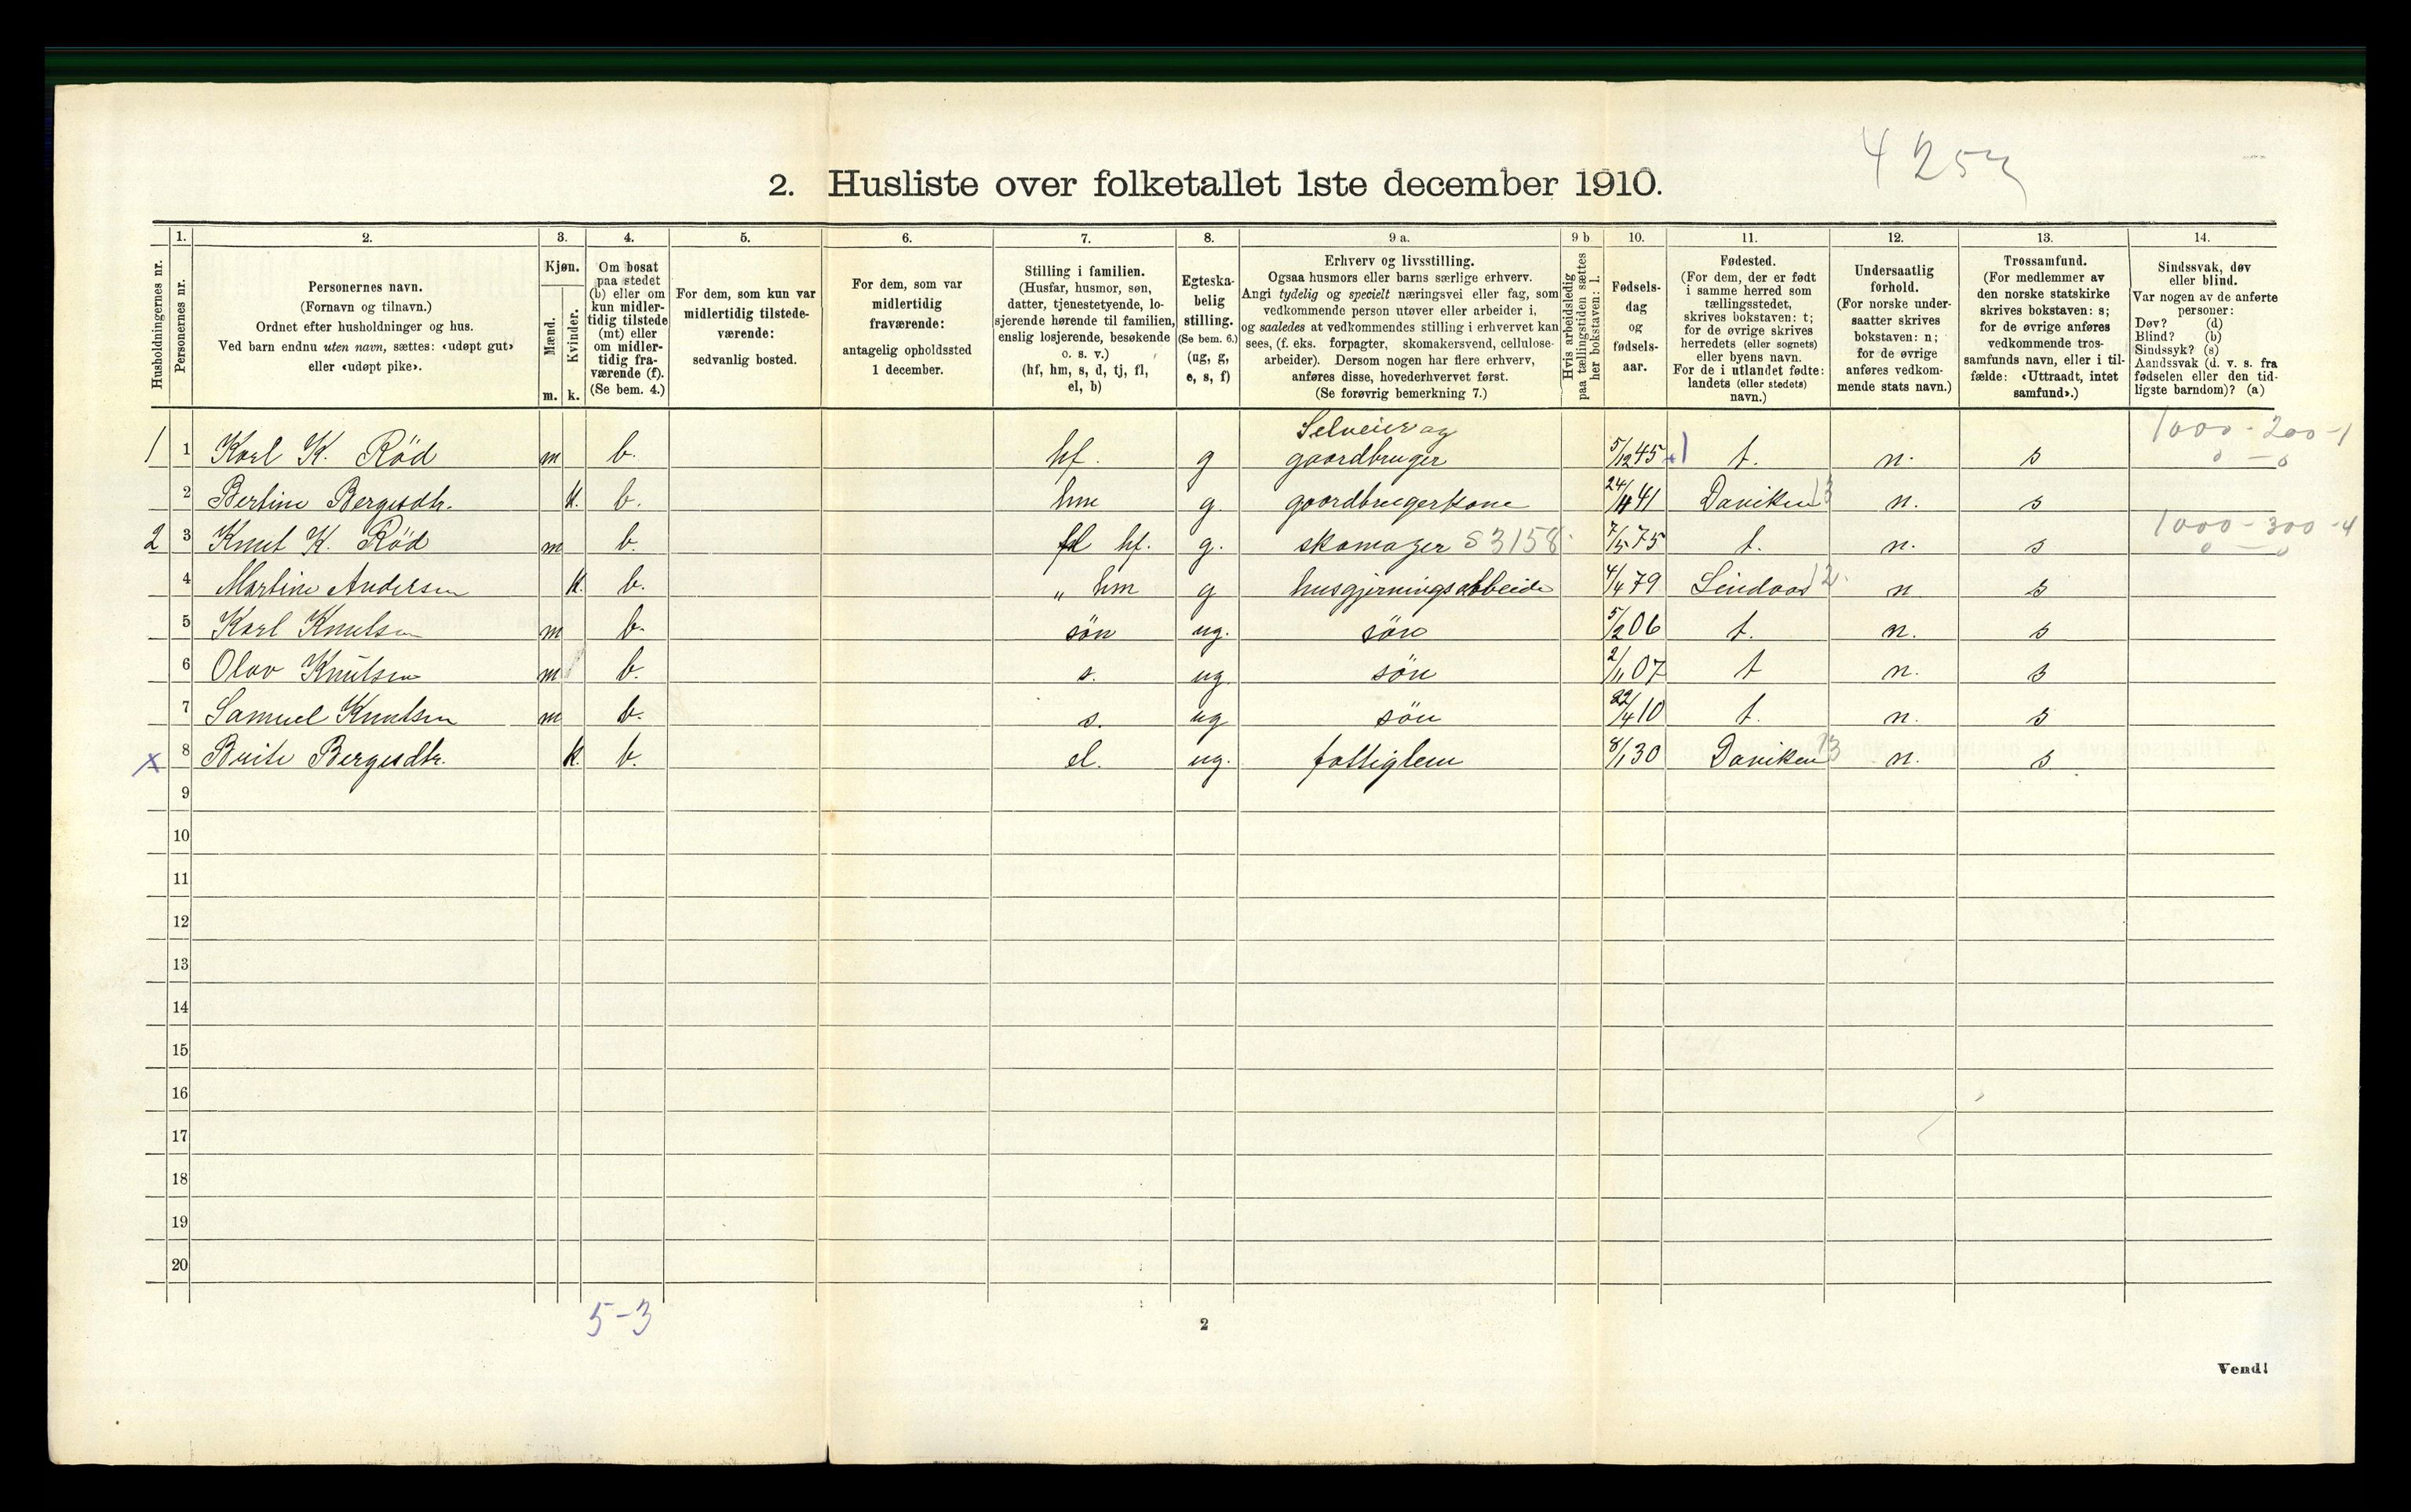 4253
2. Husliste over folketallet 1ste december 1910.
Husholdningernes nr.
1. Personernes nr.
2. Personernes navn.
(Fornavn og tilnavn.)
Ordnet efter husholdninger og hus.
Ved barn endnu uten navn, sættes: «udøpt gut»
eller «udøpt pike».
3. Kjøn.
Mænd. Kvinder.
m. k.
4. Om bosat
paa stedet
(b) eller om
kun midler-
tidig tilstede
(mt) eller
om midler-
tidig fra-
værende (f).
(Se bem. 4.)
5. For dem, som kun var
midlertidig tilstede-
værende:
sedvanlig bosted.
6. For dem, som var
midlertidig
fraværende:
antagelig opholdssted
1 december.
7. Stilling i familien.
(Husfar, husmor, søn,
datter, tjenestetyende, lo-
sjerende hørende til familien,
enslig losjerende, besøkende
o. s. v.)
(hf, hm, s, d, tj, fl,
el, b)
8. Egteska-
belig
stilling.
(Se bem. 6.)
(ug, g,
e, s, f)
9 a. Erhverv og livsstilling.
Ogsaa husmors eller barns særlige erhverv.
Angi tydelig og specielt næringsvei eller fag, som
vedkommende person utøver eller arbeider i,
og saaledes at vedkommendes stilling i erhvervet kan
sees, (f. eks. forpagter, skomakersvend, cellulose-
arbeider). Dersom nogen har flere erhverv,
anføres disse, hovederhvervet først.
(Se forøvrig bemerkning 7.)
9 b Hvis arbeidsledig
paa tællingstiden sættes
her bokstaven: l.
10. Fødsels-
dag
og
fødsels-
aar.
11. Fødested.
(For dem, der er født
i samme herred som
tællingsstedet,
skrives bokstaven: t;
for de øvrige skrives
herredets (eller sognets)
eller byens navn.
For de i utlandet fødte:
landets (eller stedets)
navn.)
12. Undersaatlig
forhold.
(For norske under-
saatter skrives
bokstaven: n;
for de øvrige
anføres vedkom-
mende stats navn.)
13. Trossamfund.
(For medlemmer av
den norske statskirke
skrives bokstaven: s;
for de øvrige anføres
vedkommende tros-
samfunds navn, eller i til-
fælde: «Uttraadt, intet
samfund».)
14. Sindssvak, døv
eller blind.
Var nogen av de anførte
personer:
Døv? (d)
Blind? (b)
Sindssyk? (s)
Aandssvak (d. v. s. fra
fødselen eller den tid-
ligste barndom)? (a)
1 1 Karl K. Rød m b. hf. g Selveier og gaardbruger 5/12 45 t. n. s 1000-200-1 0 — 0
2 Bertine Bergesdtr. k. b. hm g. gaardbrugerkone 24/11 41 Daviken 13 n. s
2 3 Knut K. Rød m b. hf. g. skomager S3158 7/5 75 t. n. s 1000-300-4 0 — 0
4 Martine Andersen k. b. „ hm g husgjerningsarbeide 4/4 79 Lindaas 12 n s
5 Karl Knutsen m b. søn ug. søn 5/2 06 t. n. s
6 Olav Knutsen m b. s. ug. søn 2/11 07 t n. s
7 Samuel Knutsen m b. s. ug søn 22/4 10 t. n. s
x 8 Brite Bergesdtr. k. b. el. ug. fattiglem 8/1 30 Daviken 13 n. s
9
10
11
12
13
14
15
16
17
18
19
20
5-3
2
Vend!